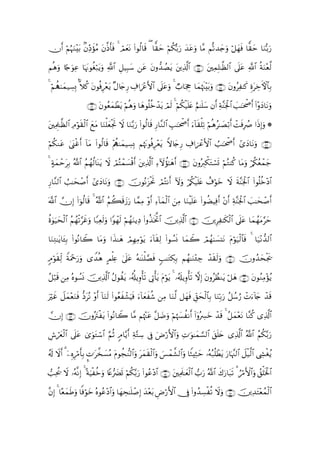 رَبُّنَا حَقًّا فَهَلْ وَجَدتُّم مَّا وَعَدَ رَبُّكُمْ حَقًّا ۖ قَالُوا۟ نَعَمْ ۚ فَأَذَّنَ مُؤَذِّنٌۢ بَيْنَهُمْ أَن
لَّعْنَةُ ٱللَّهِ عَلَى ٱلظَّـٰلِمِينَ ۝ ٱلَّذِينَ يَصُدُّونَ عَن سَبِيلِ ٱللَّهِ وَيَبْغُونَهَا عِوَجًا وَهُم
بِٱلْـَٔاخِرَةِ كَـٰفِرُونَ ۝ وَبَيْنَهُمَا حِجَابٌ ۚ وَعَلَى ٱلْأَعْرَافِ رِجَالٌ يَعْرِفُونَ كُلًّۢا بِسِيمَىٰهُمْ ۚ
وَنَادَوْا۟ أَصْحَـٰبَ ٱلْجَنَّةِ أَن سَلَـٰمٌ عَلَيْكُمْ ۚ لَمْ يَدْخُلُوهَا وَهُمْ يَطْمَعُونَ ۝
* وَإِذَا صُرِفَتْ أَبْصَـٰرُهُمْ تِلْقَآءَ أَصْحَـٰبِ ٱلنَّارِ قَالُوا۟ رَبَّنَا لَا تَجْعَلْنَا مَعَ ٱلْقَوْمِ ٱلظَّـٰلِمِينَ
۝ وَنَادَىٰٓ أَصْحَـٰبُ ٱلْأَعْرَافِ رِجَالًا يَعْرِفُونَهُم بِسِيمَىٰهُمْ قَالُوا۟ مَآ أَغْنَىٰ عَنكُمْ
جَمْعُكُمْ وَمَا كُنتُمْ تَسْتَكْبِرُونَ ۝ أَهَـٰٓؤُلَآءِ ٱلَّذِينَ أَقْسَمْتُمْ لَا يَنَالُهُمُ ٱللَّهُ بِرَحْمَةٍ ۚ
ٱدْخُلُوا۟ ٱلْجَنَّةَ لَا خَوْفٌ عَلَيْكُمْ وَلَآ أَنتُمْ تَحْزَنُونَ ۝ وَنَادَىٰٓ أَصْحَـٰبُ ٱلنَّارِ
أَصْحَـٰبَ ٱلْجَنَّةِ أَنْ أَفِيضُوا۟ عَلَيْنَا مِنَ ٱلْمَآءِ أَوْ مِمَّا رَزَقَكُمُ ٱللَّهُ ۚ قَالُوٓا۟ إِنَّ ٱللَّهَ
حَرَّمَهُمَا عَلَى ٱلْكَـٰفِرِينَ ۝ ٱلَّذِينَ ٱتَّخَذُوا۟ دِينَهُمْ لَهْوًا وَلَعِبًا وَغَرَّتْهُمُ ٱلْحَيَوٰةُ
ٱلدُّنْيَا ۚ فَٱلْيَوْمَ نَنسَىٰهُمْ كَمَا نَسُوا۟ لِقَآءَ يَوْمِهِمْ هَـٰذَا وَمَا كَانُوا۟ بِـَٔايَـٰتِنَا
يَجْحَدُونَ ۝ وَلَقَدْ جِئْنَـٰهُم بِكِتَـٰبٍ فَصَّلْنَـٰهُ عَلَىٰ عِلْمٍ هُدًى وَرَحْمَةً لِّقَوْمٍ
يُؤْمِنُونَ ۝ هَلْ يَنظُرُونَ إِلَّا تَأْوِيلَهُۥ ۚ يَوْمَ يَأْتِى تَأْوِيلُهُۥ يَقُولُ ٱلَّذِينَ نَسُوهُ مِن قَبْلُ
قَدْ جَآءَتْ رُسُلُ رَبِّنَا بِٱلْحَقِّ فَهَل لَّنَا مِن شُفَعَآءَ فَيَشْفَعُوا۟ لَنَآ أَوْ نُرَدُّ فَنَعْمَلَ غَيْرَ
ٱلَّذِى كُنَّا نَعْمَلُ ۚ قَدْ خَسِرُوٓا۟ أَنفُسَهُمْ وَضَلَّ عَنْهُم مَّا كَانُوا۟ يَفْتَرُونَ ۝ إِنَّ
رَبَّكُمُ ٱللَّهُ ٱلَّذِى خَلَقَ ٱلسَّمَـٰوَٰتِ وَٱلْأَرْضَ فِى سِتَّةِ أَيَّامٍ ثُمَّ ٱسْتَوَىٰ عَلَى ٱلْعَرْشِ
يُغْشِى ٱلَّيْلَ ٱلنَّهَارَ يَطْلُبُهُۥ حَثِيثًا وَٱلشَّمْسَ وَٱلْقَمَرَ وَٱلنُّجُومَ مُسَخَّرَٰتٍۭ بِأَمْرِهِۦٓ ۗ أَلَا لَهُ
ٱلْخَلْقُ وَٱلْأَمْرُ ۗ تَبَارَكَ ٱللَّهُ رَبُّ ٱلْعَـٰلَمِينَ ۝ ٱدْعُوا۟ رَبَّكُمْ تَضَرُّعًا وَخُفْيَةً ۚ إِنَّهُۥ لَا يُحِبُّ
ٱلْمُعْتَدِينَ ۝ وَلَا تُفْسِدُوا۟ فِى ٱلْأَرْضِ بَعْدَ إِصْلَـٰحِهَا وَٱدْعُوهُ خَوْفًا وَطَمَعًا ۚ إِنَّ